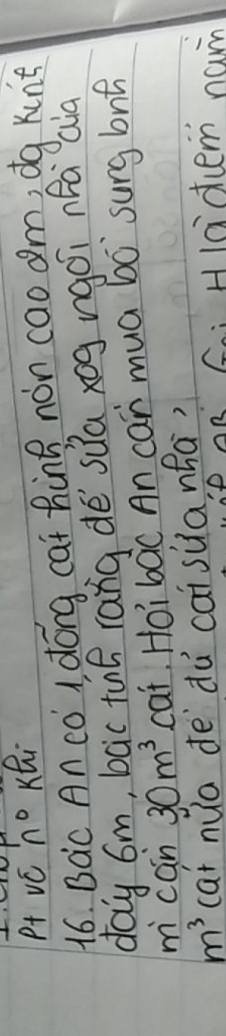 Pt vc n° khi
16. Bác An có 1 đống cát hình nón cao 2m, đg kính
đáy 6m, bác tính rằng để sửa xog ngôi nhà của
mì cần 30m³ cát. Hỏi bác An cần mua bổ sung bnh
m³ cát nữa để đủ cát sửa nhà,
H là điểm nằm